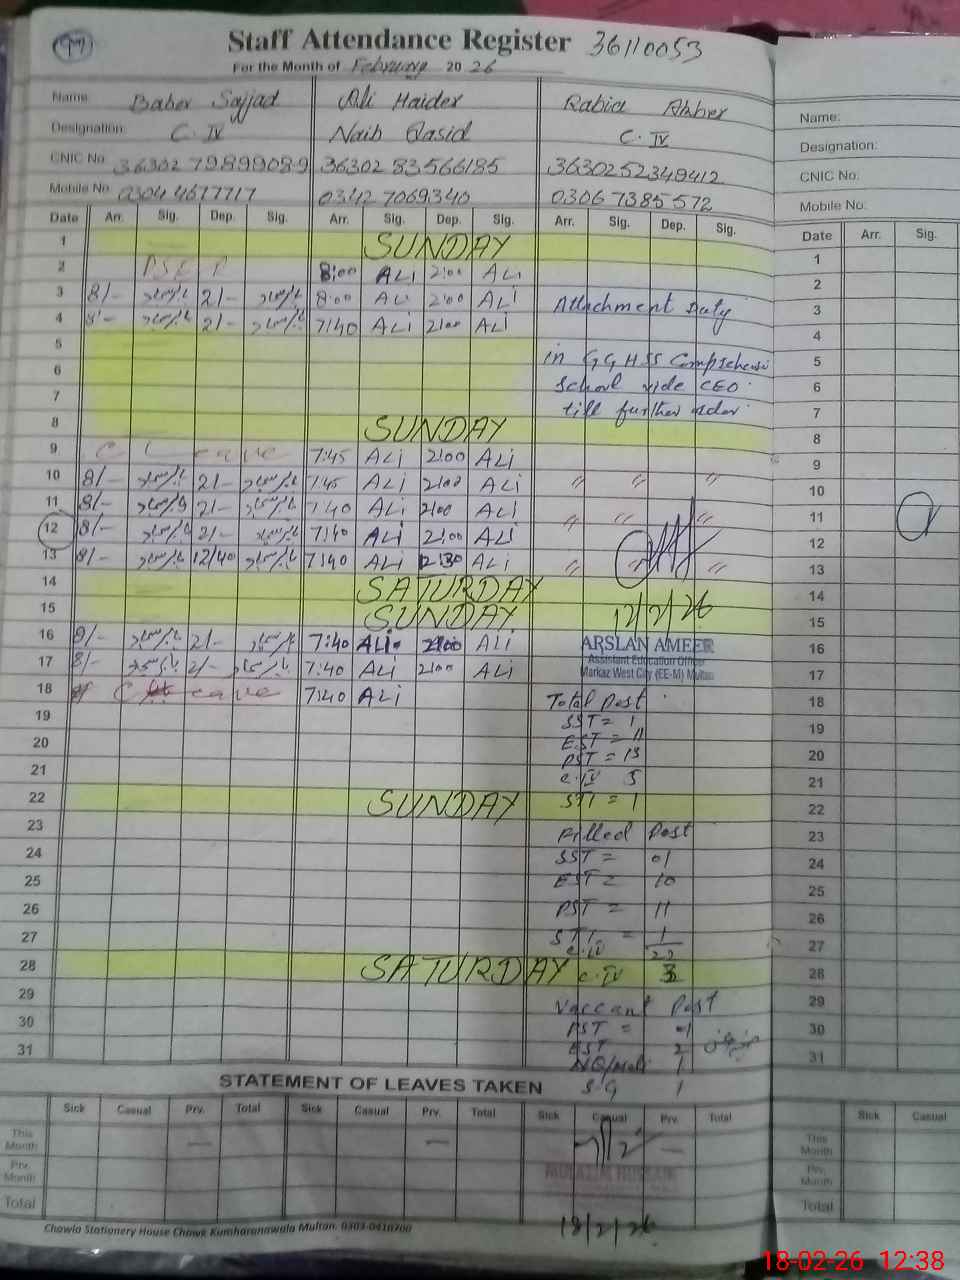 Staff Attendance Register 36110053
For the Month of February 2026
Name: Baber Sajjad Ali Haider Rabia Akber
Designation: C.IV Naib Qasid C.IV
CNIC No. 36302 7989908 9 36302 83566185 3630252349412
Mobile No. 0304 4677717 0342 7069340 0306 7385572
Date Arr. Sig. Dep. Sig. Arr. Sig. Dep. Sig. Arr. Sig. Dep. Sig.
1 SUNDAY
2 8:00 ALi 2:00 ALi
3 8/- 2/- 8:00 ALi 2:00 ALi Attachment Duty
4 8/- 2/- 7:40 ALi 2:00 ALi
5 in GGHSS Comprehensi
6 School vide CEO
7 till further order
8 SUNDAY
9 C Leave 7:45 ALi 2:00 ALi
10 8/- 2/- 7:45 ALi 2:00 ALi " " "
11 8/- 2/- 7:40 ALi 2:00 ALi " " "
12 8/- 2/- 7:40 ALi 2:00 ALi
13 8/- 12/40 7:40 ALi ALi " "
14 SATURDAY
15 SUNDAY 12/2/26
16 8/- 2/- 7:40 ALi 2:00 ALi ARSLAN AMEER
Assistant Education Officer
17 8/- 2/- 7:40 ALi 2:00 ALi Markaz West City (EE-M) Multan
18 C Leave 7:40 ALi Total Post
19 SST = 1
20 EST = 11
PST = 13
21 C.IV 5
22 SUNDAY STI = 1
23 Filled Post
24 SST = 01
25 EST = 10
26 PST = 11
27 STI = 1
C.IV 22
28 SATURDAY C.IV 3
29 Vaccant Post
30 PST = 01
31 EST 2
1
S.G 1
STATEMENT OF LEAVES TAKEN
Sick Casual Prv. Total Sick Casual Prv. Total Sick Casual Prv. Total
This Month
Prv. Month
MUAZIM HUSSAIN
Total
18/2/26
Chawla Stationery House Chowk Kumharanawala Multan. 0303-0410700
Name:
Designation:
CNIC No.
Mobile No.
Date Arr. Sig.
1
2
3
4
5
6
7
8
9
10
11
12
13
14
15
16
17
18
19
20
21
22
23
24
25
26
27
28
29
30
31
Sick Casual
This Month
Prv. Month
Total
18-02-26 12:38